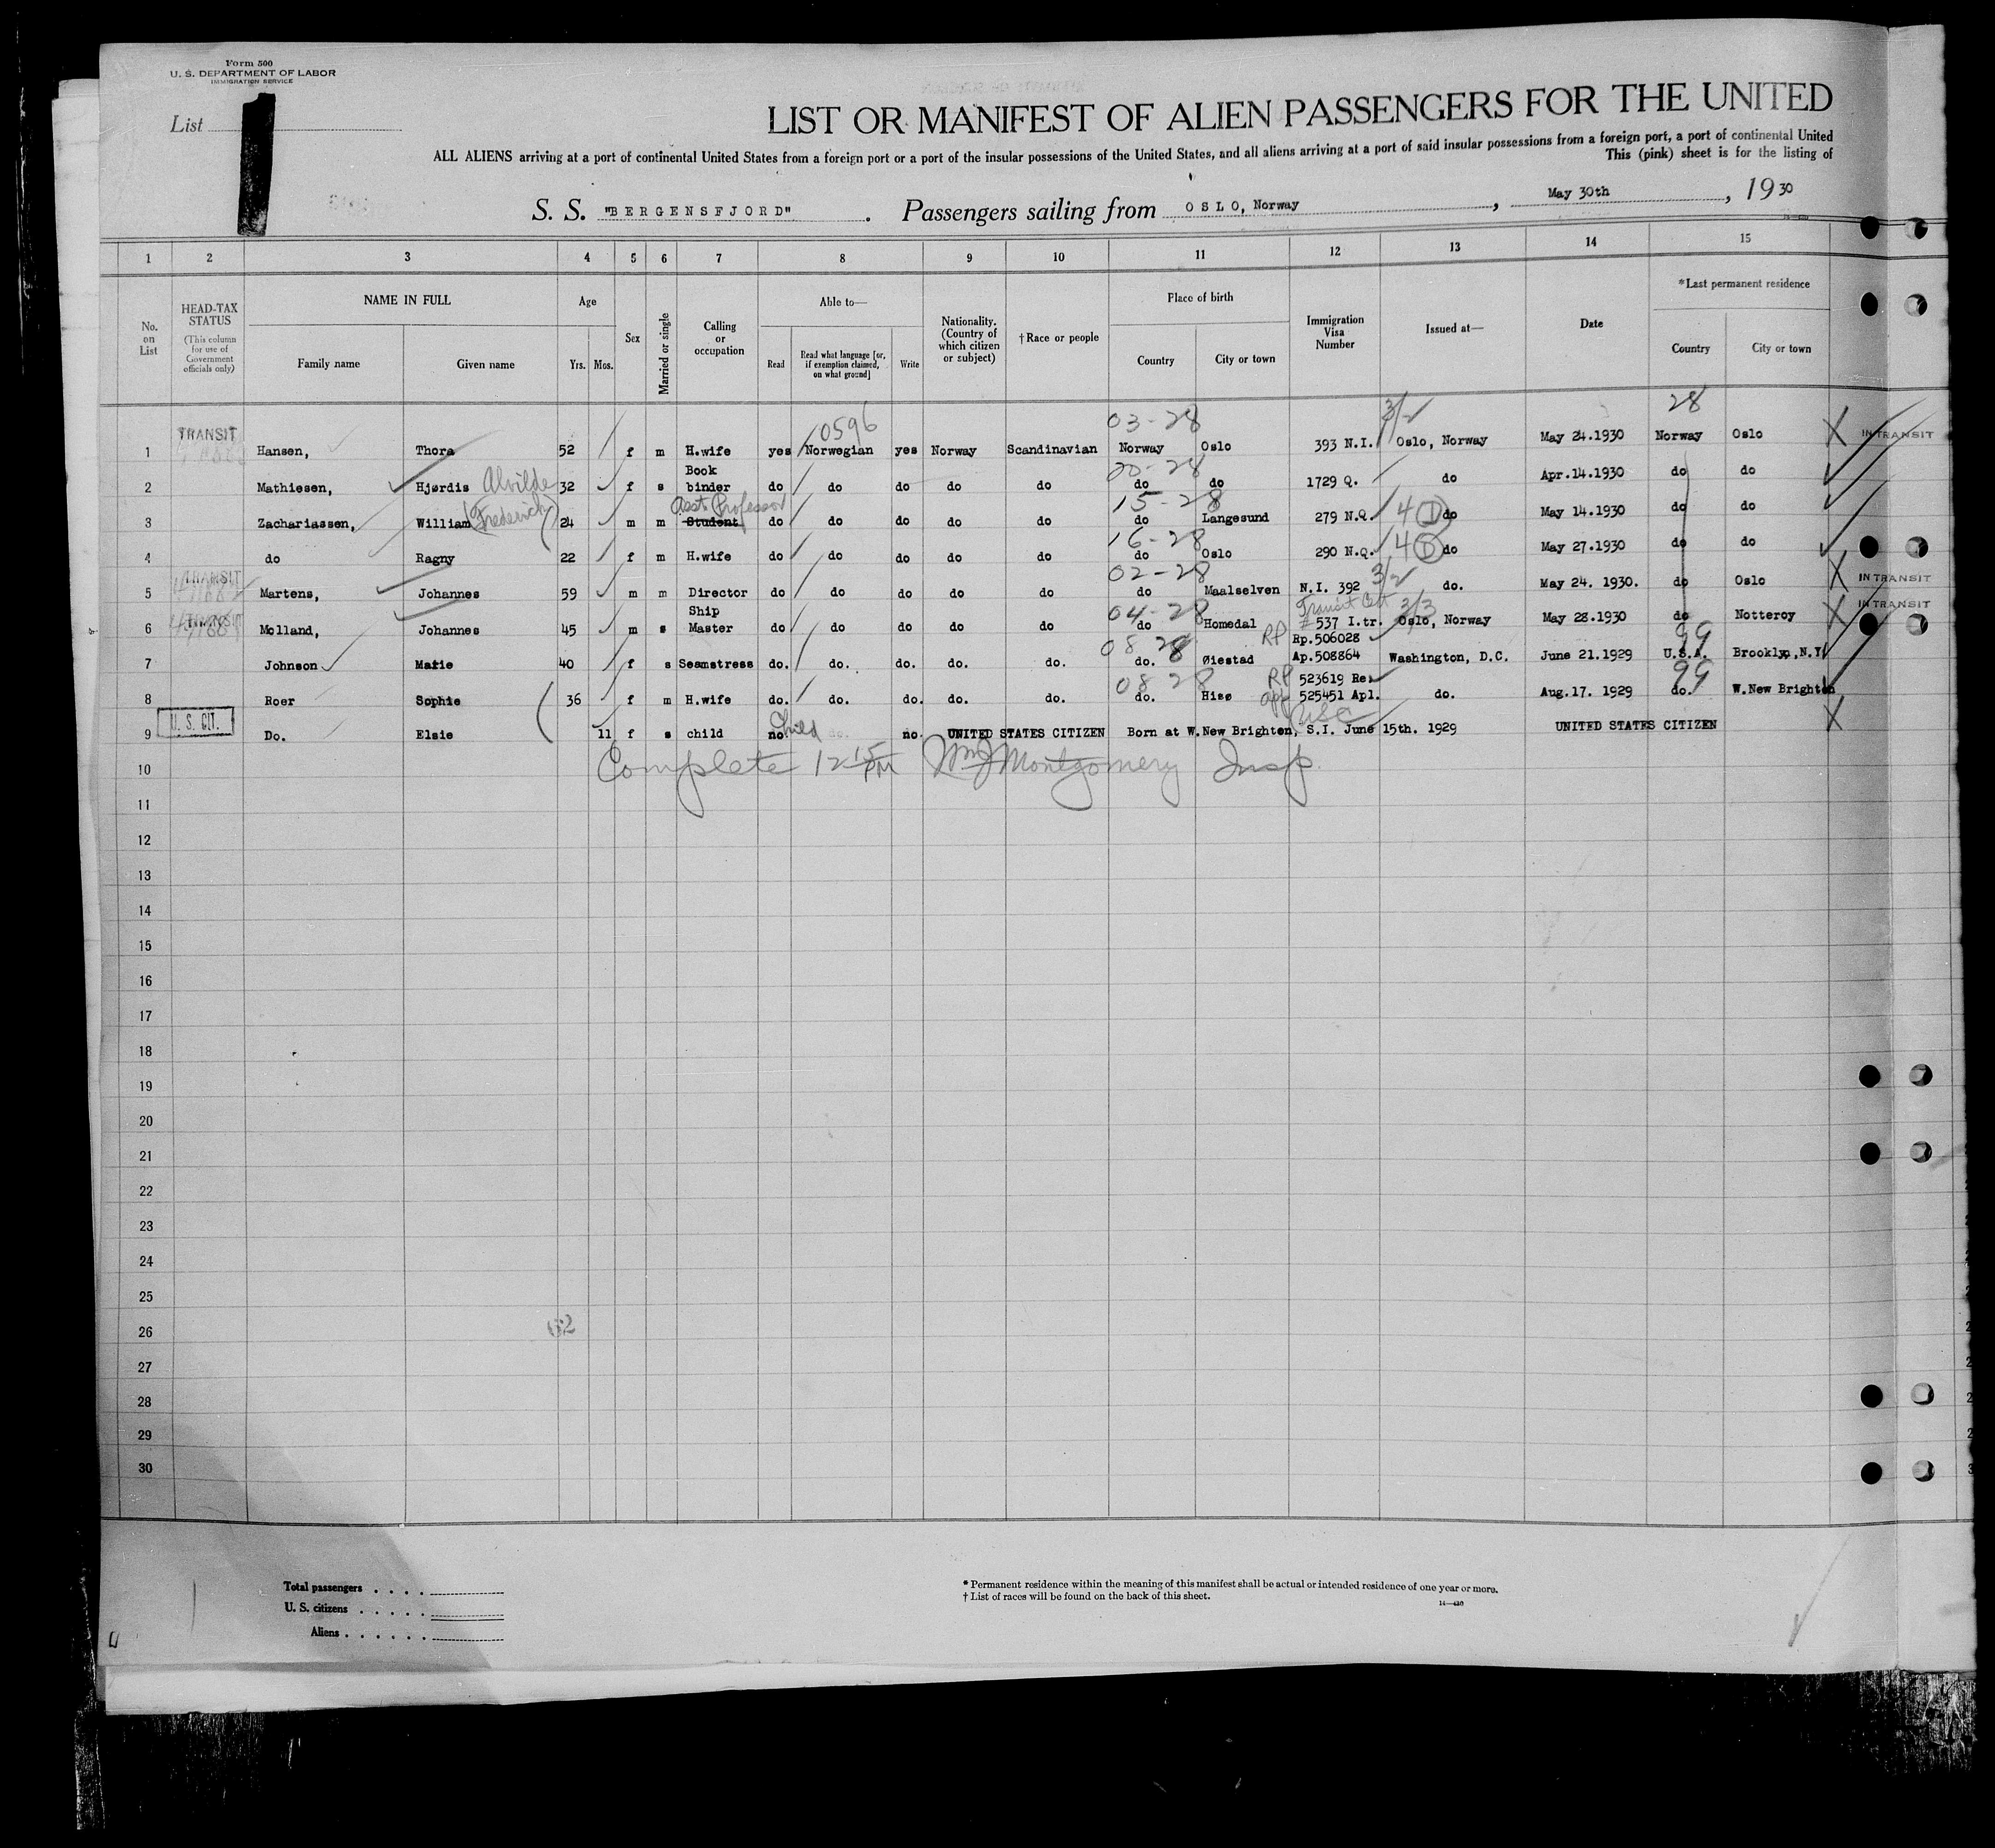 Form 500
U. S. DEPARTMENT OF LABOR
IMMIGRATION SERVICE
List
LIST OR MANIFEST OF ALIEN PASSENGERS FOR THE UNITED
ALL ALIENS arriving at a port of continental United States from a foreign port or a port of the insular possessions of the United States, and all aliens arriving at a port of said insular possessions from a foreign port, a port of continental United
This (pink) sheet is for the listing of
S. S. "BERGENSFJORD". Passengers sailing from OSLO, Norway, May 30th, 1930
1 2 3 4 5 6 7 8 9 10 11 12 13 14 15
No. on List
HEAD-TAX STATUS (This column for use of Government officials only)
NAME IN FULL
Family name Given name
Age
Yrs. Mos.
Sex
Married or single
Calling or occupation
Able to—
Read Read what language [or, if exemption claimed, on what ground] Write
Nationality. (Country of which citizen or subject)
†Race or people
Place of birth
Country City or town
Immigration Visa Number
Issued at—
Date
*Last permanent residence
Country City or town
0596 03-28 3/2 28
1 TRANSIT Hansen, Thora 52 f m H.wife yes Norwegian yes Norway Scandinavian Norway Oslo 393 N.I. Oslo, Norway May 24.1930 Norway Oslo X IN TRANSIT
00-28
2 Mathiesen, Hjørdis Alvilde 32 f s Book binder do do do do do do do 1729 Q. do Apr.14.1930 do do
Asst Professor 15-28
3 Zachariassen, William (Frederick) 24 m m Student do do do do do do Langesund 279 N.Q. 4 D do May 14.1930 do do
16-28
4 do Ragny 22 f m H.wife do do do do do do Oslo 290 N.Q. 4 D do May 27.1930 do do
02-28 3/2
5 TRANSIT Martens, Johannes 59 m m Director do do do do do do Maalselven N.I. 392 do. May 24. 1930. do Oslo X IN TRANSIT
04-28 Transit Cert 3/3
6 TRANSIT Molland, Johannes 45 m s Ship Master do do do do do do Homedal # 537 I.tr. Oslo, Norway May 28.1930 do Notteroy X IN TRANSIT
08 28 RP Rp.506028 99
7 Johnson Marie 40 f s Seamstress do. do. do. do. do. do. Øiestad Ap.508864 Washington, D.C. June 21.1929 U.S.A. Brooklyn,N.Y.
08-28 RP 523619 Re. 99
8 Roer Sophie 36 f m H.wife do. do. do. do. do. do. Hisø app 525451 Apl. do. Aug.17. 1929 do. W.New Brighton
USC
9 U. S. CIT. Do. Elsie 11 f s child no Child do. no. UNITED STATES CITIZEN Born at W.New Brighten, S.I. June 15th. 1929 UNITED STATES CITIZEN X
10 Complete 12 15 PM Wm J Montgomery Insp.
11
12
13
14
15
16
17
18
19
20
21
22
23
24
25
26
62
27
28
29
30
Total passengers . . . .
U. S. citizens . . . . .
Aliens . . . . . .
* Permanent residence within the meaning of this manifest shall be actual or intended residence of one year or more.
† List of races will be found on the back of this sheet.